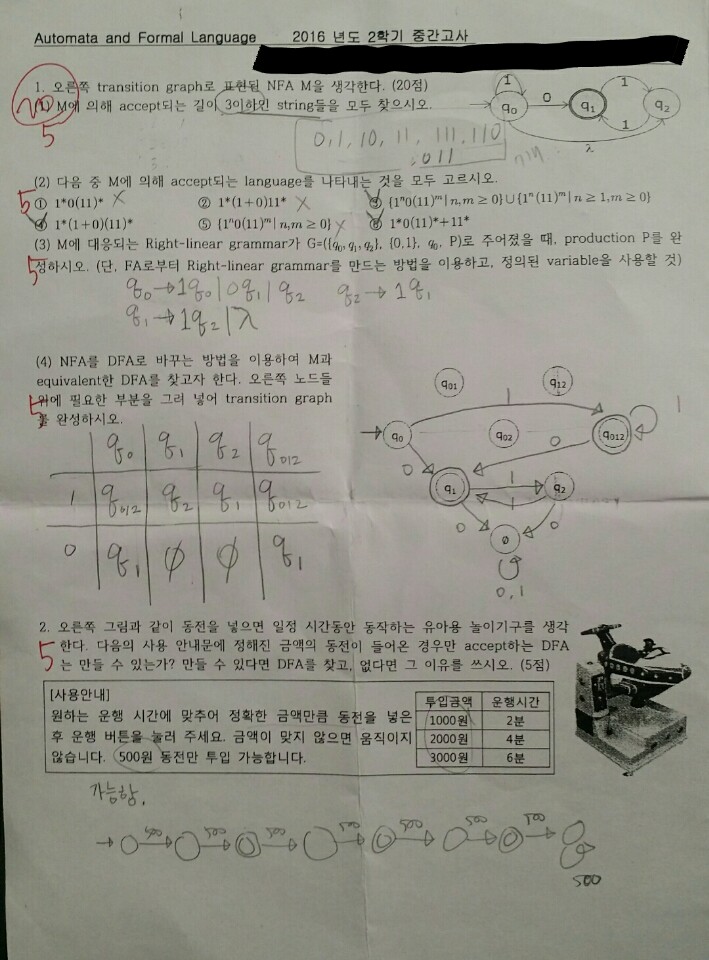 Automata and Formal Language 2016 년도 2학기 중간고사
1. 오른쪽 transition graph로 표현된 NFA M을 생각한다. (20점)
20
(1) M에 의해 accept되는 길이 3이하인 string들을 모두 찾으시오.
5
1 0 1 1 λ
q₀ q₁ q₂
0, 1, 10, 11, 111, 110
011
(2) 다음 중 M에 의해 accept되는 language를 나타내는 것을 모두 고르시오.
5
① 1*0(11)* X ② 1*(1+0)11* X ③ {1ⁿ0(11)ᵐ | n,m ≥ 0} ∪ {1ⁿ(11)ᵐ | n ≥ 1, m ≥ 0}
④ 1*(1+0)(11)* ⑤ {1ⁿ0(11)ᵐ | n,m ≥ 0} X ⑥ 1*0(11)*+11*
(3) M에 대응되는 Right-linear grammar가 G=({q₀, q₁, q₂}, {0,1}, q₀, P)로 주어졌을 때, production P를 완
5
성하시오. (단, FA로부터 Right-linear grammar를 만드는 방법을 이용하고, 정의된 variable을 사용할 것)
q₀ → 1q₀ | 0q₁ | q₂ q₂ → 1q₁
q₁ → 1q₂ | λ
(4) NFA를 DFA로 바꾸는 방법을 이용하여 M과
equivalent한 DFA를 찾고자 한다. 오른쪽 노드들
5
위에 필요한 부분을 그려 넣어 transition graph
를 완성하시오.
q₀ q₁ q₂ q₀₁₂
1 q₀₁₂ q₂ q₁ q₀₁₂
0 q₁ ∅ ∅ q₁
q₀₁ q₁₂
1 1
q₀ q₀₂ q₀₁₂
0 0
q₁ 1 q₂
1
0 0
∅
0, 1
2. 오른쪽 그림과 같이 동전을 넣으면 일정 시간동안 동작하는 유아용 놀이기구를 생각
5
한다. 다음의 사용 안내문에 정해진 금액의 동전이 들어온 경우만 accept하는 DFA
는 만들 수 있는가? 만들 수 있다면 DFA를 찾고, 없다면 그 이유를 쓰시오. (5점)
[사용안내]
원하는 운행 시간에 맞추어 정확한 금액만큼 동전을 넣은
후 운행 버튼을 눌러 주세요. 금액이 맞지 않으면 움직이지
않습니다. 500원 동전만 투입 가능합니다.
투입금액 운행시간
1000원 2분
2000원 4분
3000원 6분
가능함.
500 500 500 500 500 500 500
500